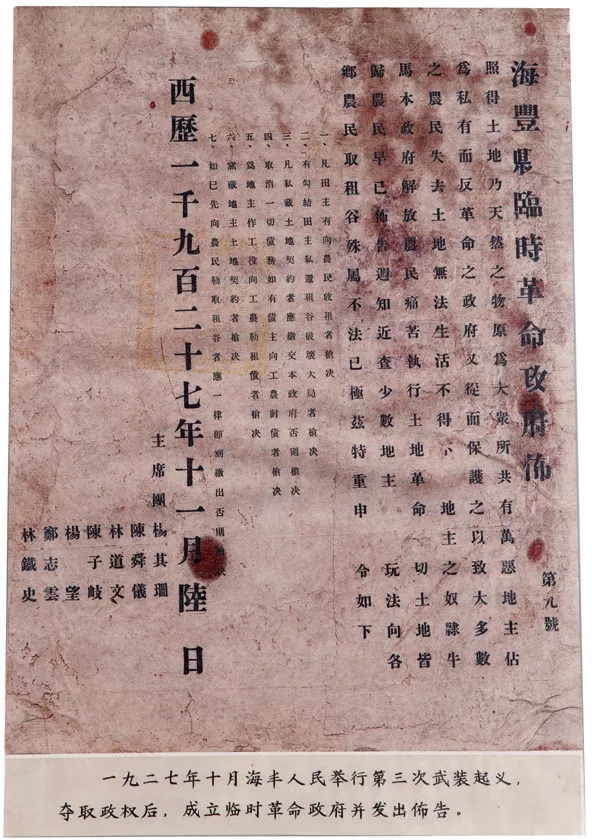 海豐縣臨時革命政府佈
第九號
照得土地乃天然之物原爲大衆所共有萬惡地主佔
爲私有而反革命之政府又從而保護之以致大多數
之農民失去土地無法生活不得 地主之奴隸牛
馬本政府解放農民痛苦執行土地革命 切土地皆
歸農民早已佈告週知近查少數地主 玩法向各
鄉農民取租谷殊屬不法已極茲特重申 令如下
一、凡田主有向農民收租者槍决
二、有勾結田主私還租谷破壞大局者槍决
三、凡私藏土地契約者應繳交本政府否則槍决
四、取消一切債務如有債主向工農討債者槍决
五、爲地主作工役向工農勒租債者槍决
六、窩藏地主土地契約者槍决
七、如已先向農民勒取租谷者應一律即刻繳出否則 决
西歷一千九百二十七年十一月陸日
主席團 楊其珊
陳舜儀
林道文
陳子岐
楊望
鄭志雲
林鐵史
一九二七年十月海丰人民举行第三次武装起义，
夺取政权后，成立临时革命政府并发出佈告。